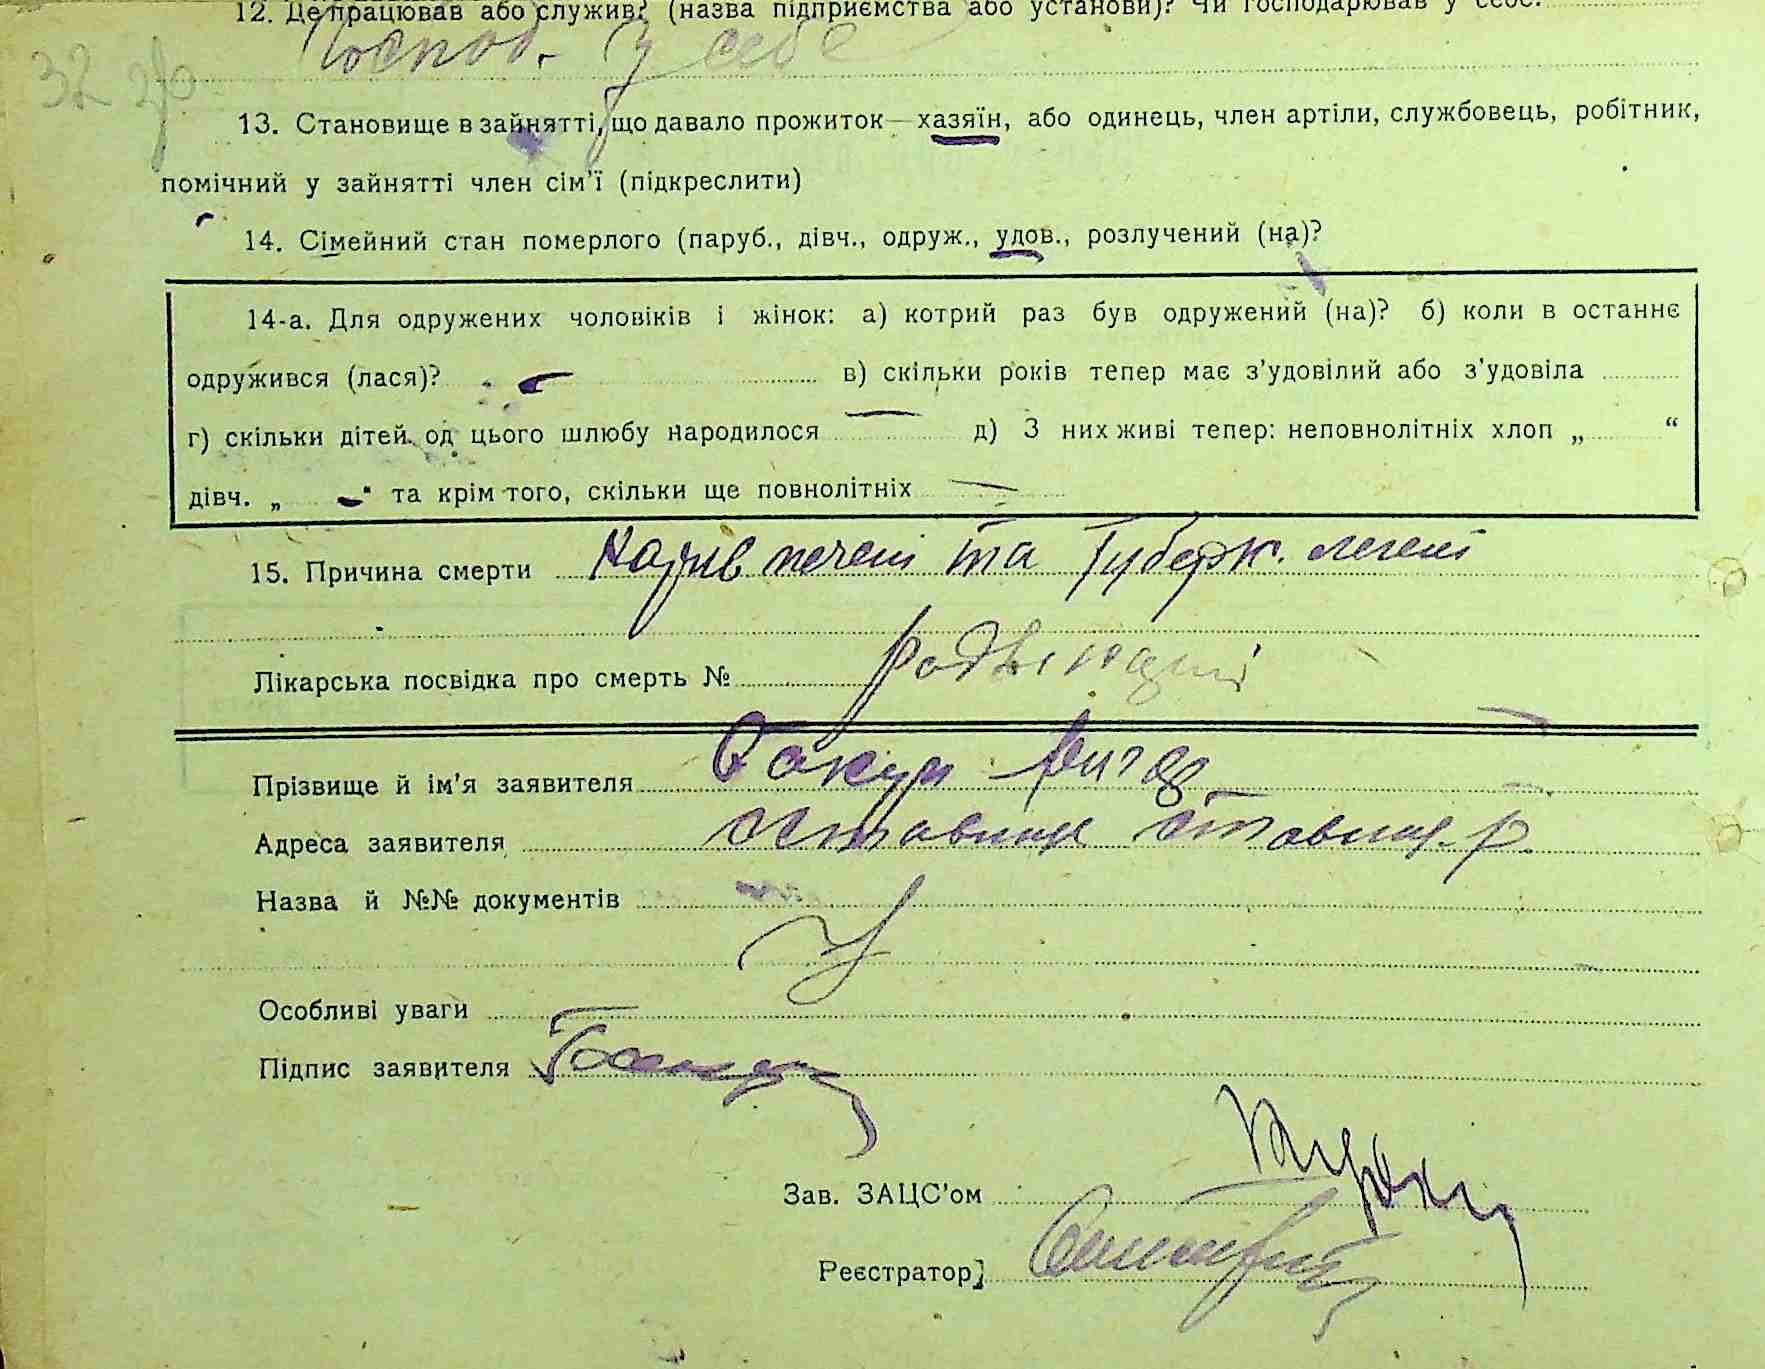 12. Де працював або служив? (назва підприємства або установи)? Чи господарював у себе.
Господ. у себе
32
13. Становище в зайнятті, що давало прожиток — хазяїн, або одинець, член артіли, службовець, робітник,
помічний у зайнятті член сім'ї (підкреслити)
14. Сімейний стан померлого (паруб., дівч., одруж., удов., розлучений (на)?
14-а. Для одружених чоловіків і жінок: а) котрий раз був одружений (на)? б) коли в останнє
одружився (лася)? в) скільки років тепер має з'удовілий або з'удовіла
г) скільки дітей од цього шлюбу народилося д) З них живі тепер: неповнолітніх хлоп „ “
дівч. „ “ та крім того, скільки ще повнолітніх
15. Причина смерти Нарив печені та Туберк. легені
Лікарська посвідка про смерть №
Прізвище й ім'я заявителя
Адреса заявителя Ставище Ставищ. р.
Назва й №№ документів
Особливі уваги
Підпис заявителя
Зав. ЗАЦС'ом
Реєстратор